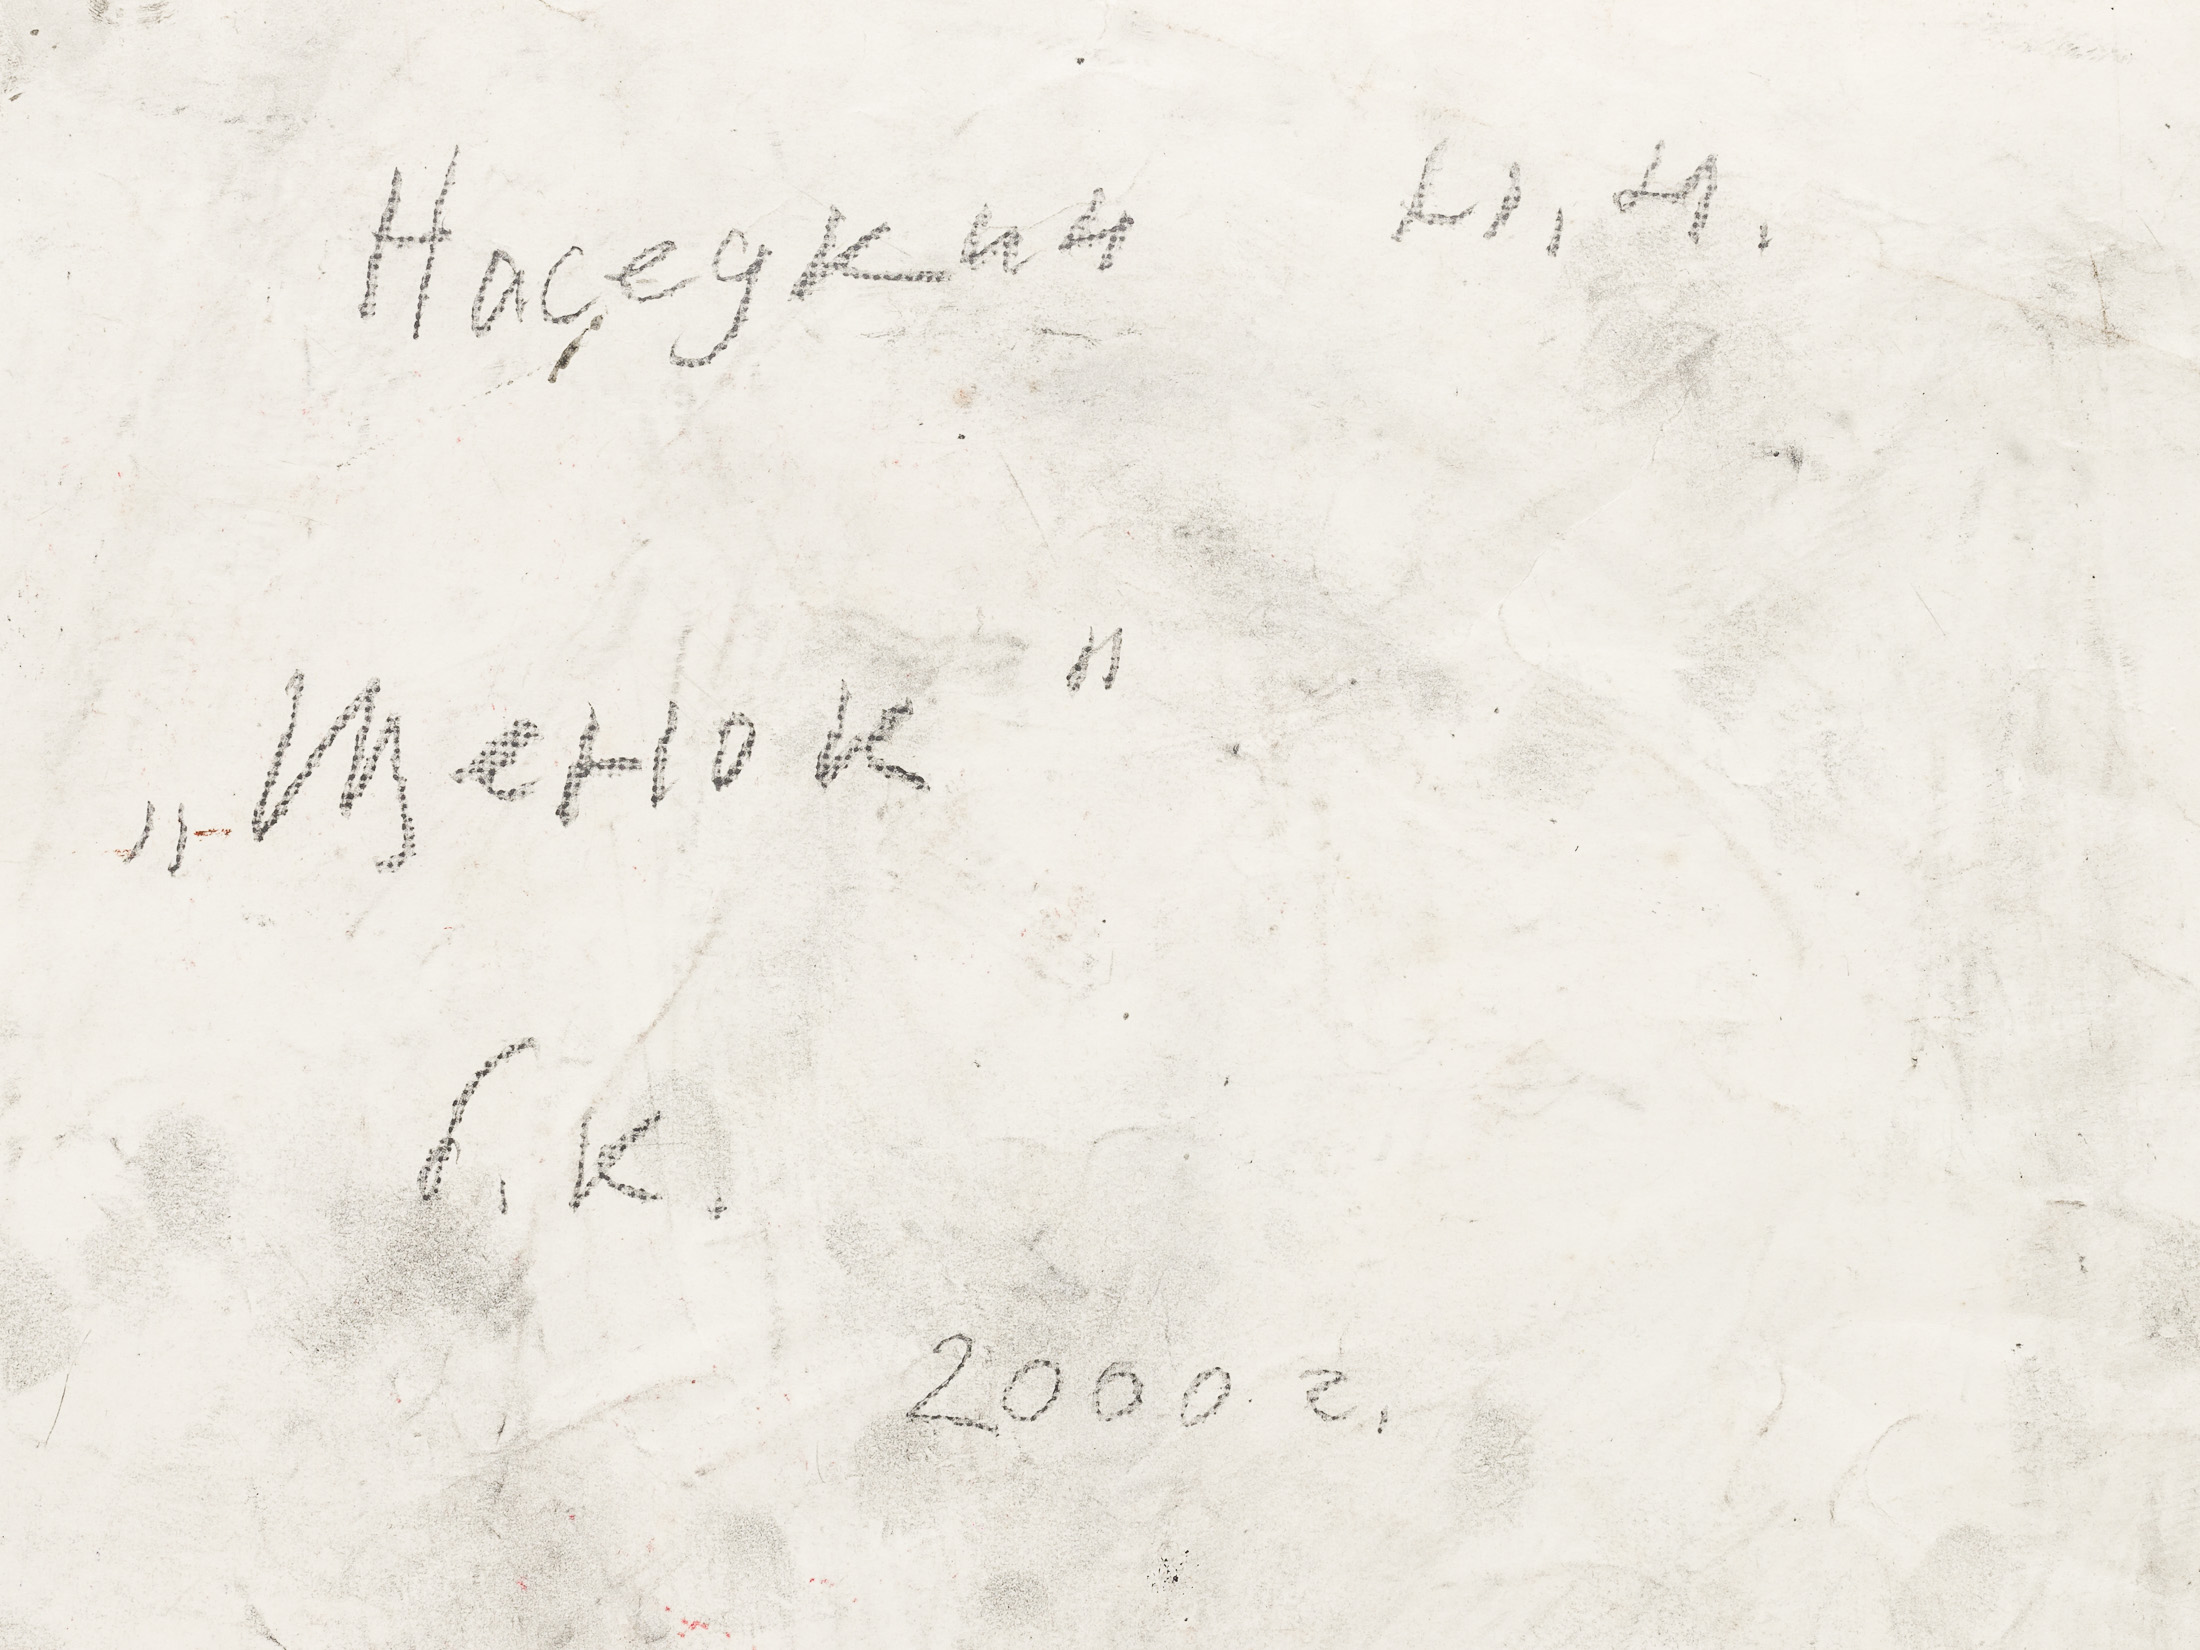 Наседкин Н. Н.
„Щенок"
б. к.
2000 г.